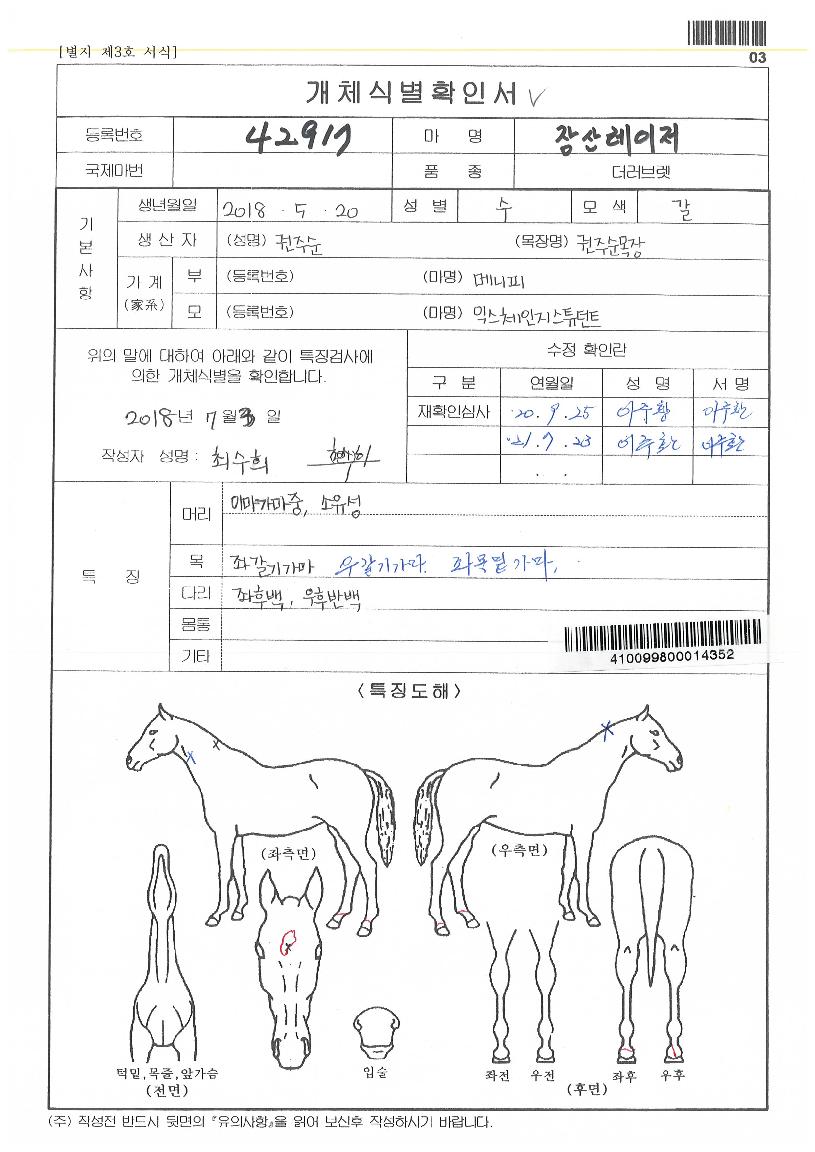 [별지 제3호 서식]
03
개체식별확인서 ✓
등록번호 42917 마 명 장산레이저
국제마번 품 종 더러브렛
기본사항
생년월일 2018 . 5 . 20 성 별 수 모 색 갈
생 산 자 (성명) 권주순 (목장명) 권주순목장
가 계 (家系) 부 (등록번호) (마명) 메니피
모 (등록번호) (마명) 믹스체인지스튜던트
위의 말에 대하여 아래와 같이 특징검사에
의한 개체식별을 확인합니다.
2018년 7월 일
작성자 성명 : 최수희
수정 확인란
구 분 연월일 성 명 서 명
재확인심사 '20. 9. 25 이주황
'21. 9. 23
특 징
머리 이마가마중, 소유성
목 좌갈기가마 우갈기가마. 좌목밑가마.
다리 좌후백, 우후반백
몸통
기타
410099800014352
<특징도해>
(좌측면) (우측면)
턱밑,목줄,앞가슴
(전면)
입술
좌전 우전 좌후 우후
(후면)
(주) 작성전 반드시 뒷면의 『유의사항』을 읽어 보신후 작성하시기 바랍니다.